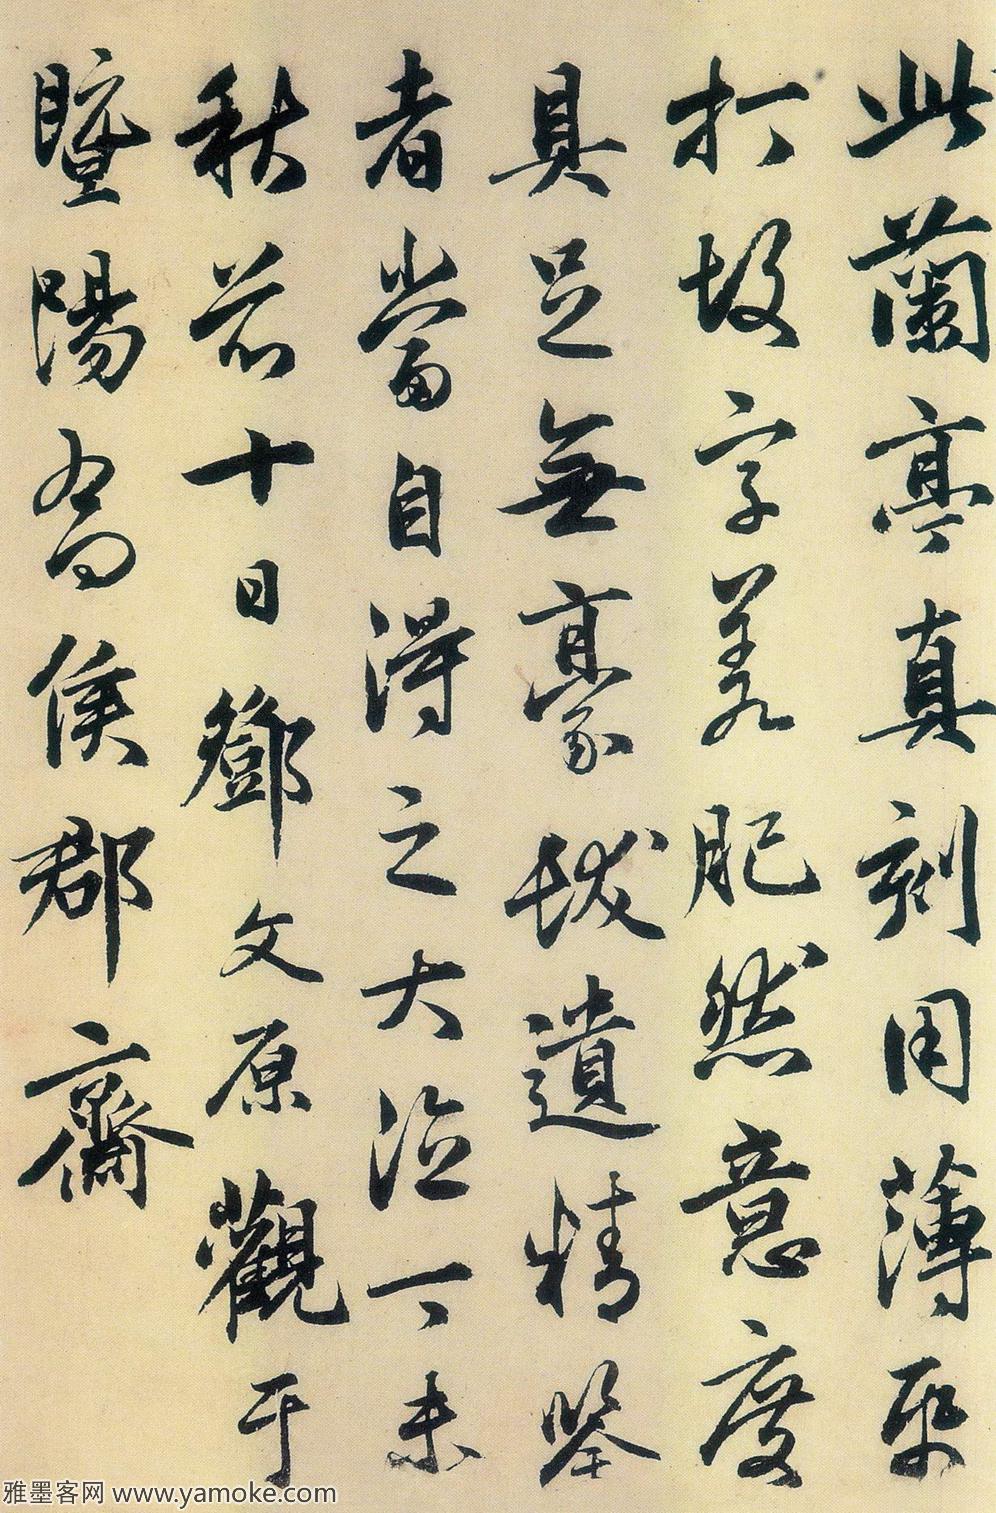 此蘭亭真刻用薄帋
打故字差肥然意度
具足無豪髮遺精鑒
者當自得之大德丁未
秋前十日鄧文原觀于
暨陽喬侯郡齋
雅墨客网 www.yamoke.com